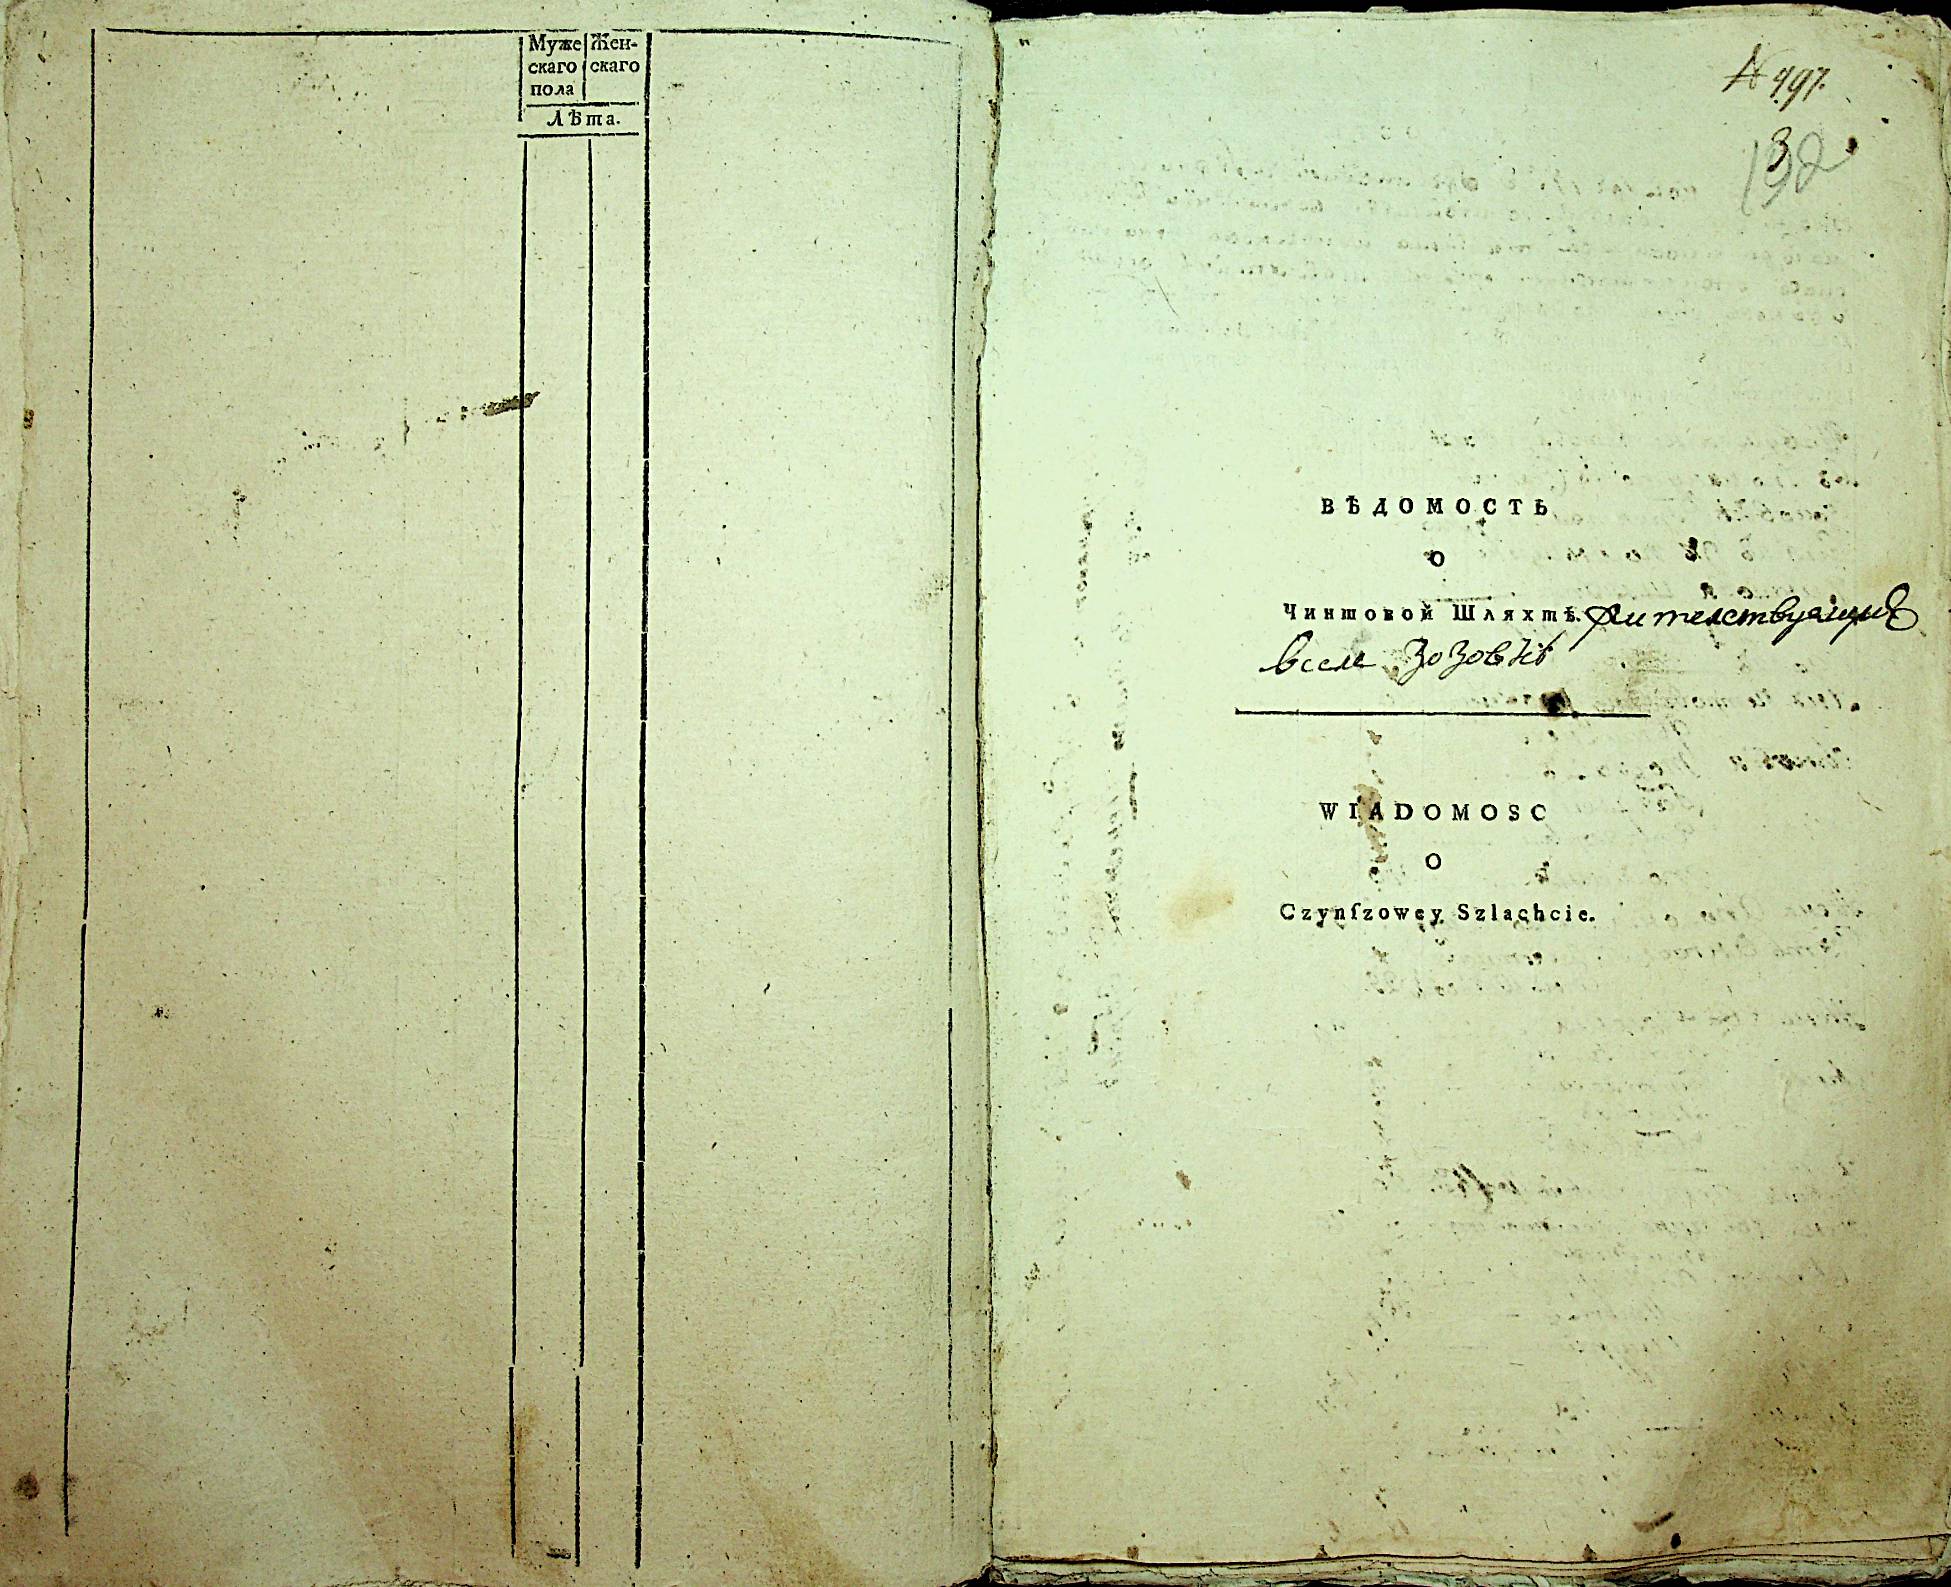 Муже Жен-
скаго скаго
пола
Лѣта.
№ 497.
132
ВѢДОМОСТЬ
О
Чиншовой Шляхтѣ. Жителствующие
вселе Зозовкѣ
WIADOMOSC
O
Czynſzowey Szlachcie.